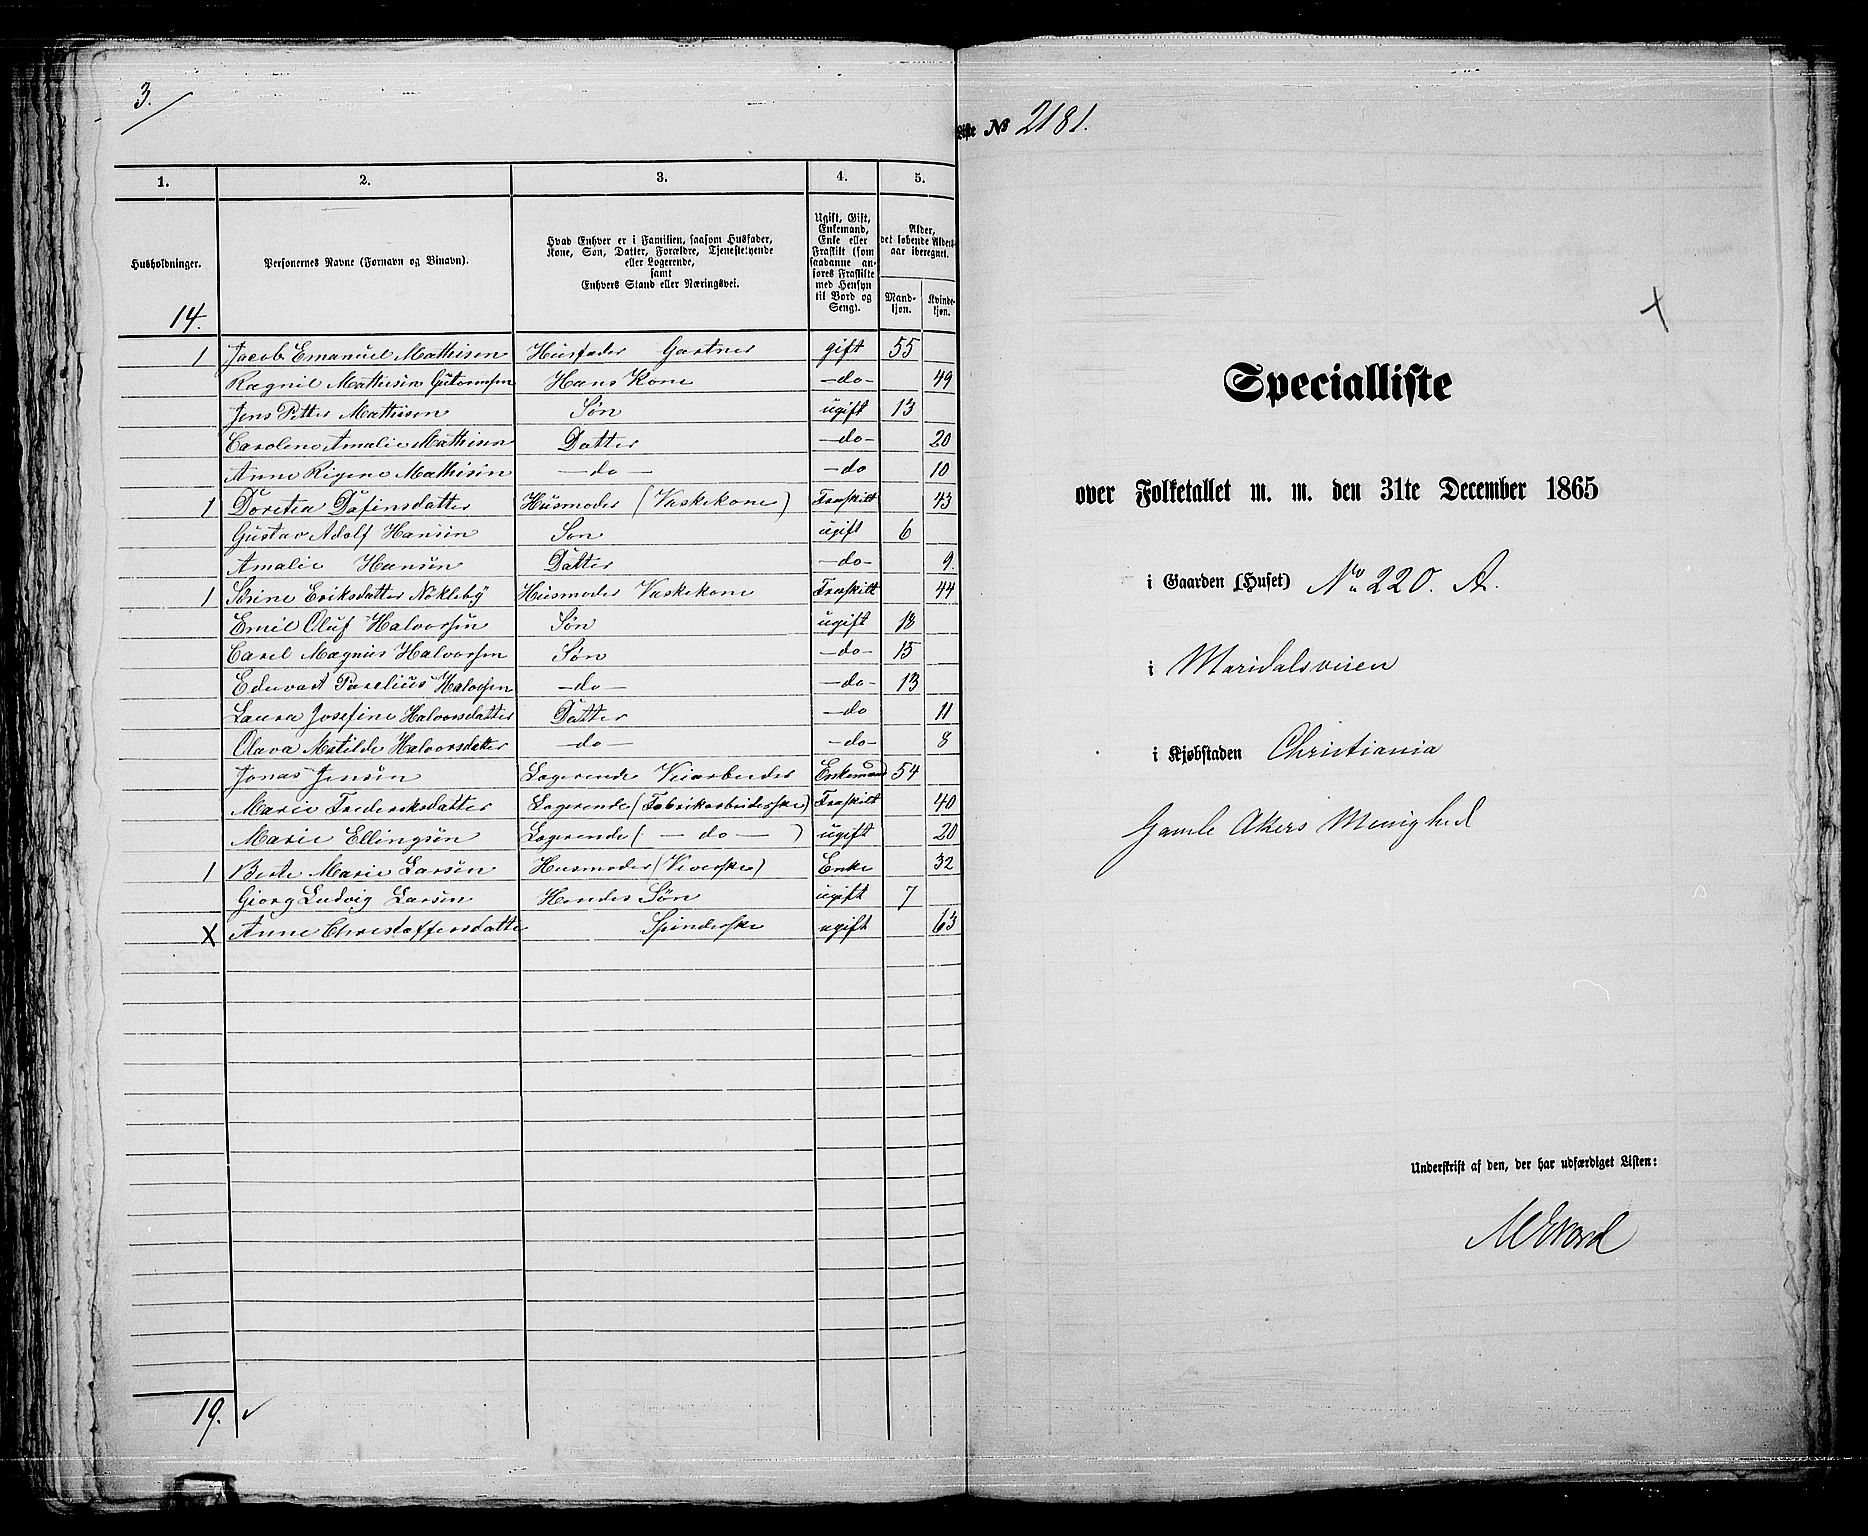 3.
1. 2. 3. 4. 5.
Husholdninger.
Personernes Navne (Fornavn og Binavn).
Hvad Enhver er i Familien, saasom Husfader,
Kone, Søn, Datter, Forældre, Tjenestetyende
eller Logerende,
samt
Enhvers Stand eller Næringsvei.
Ugift, Gift,
Enkemand,
Enke eller
Fraskilt (som
saadanne an-
føres Fraskilte
med Hensyn
til Bord og
Seng).
Alder,
det løbende Alders-
aar iberegnet.
Mand-
kjøn.
Kvinde-
kjøn.
14.
1 Jacob Emanuel Mathisen Husfader Gartner gift 55
Ragnil Mathisen Gutormsen Hans Kone -do- 49
Jens Petter Mathisen Søn ugift 13
Caroline Amalie Mathisen Datter -do- 20
Anne Rigene Mathisen -do- -do 10
1 Doretea Dafinsdatter Husmoder (Vaskekone) Fraskilt 43
Gustav Adolf Hansen Søn ugift 6
Amalie Hansen Datter -do- 9.
1 Sørine Eriksdatter Nøkleby Husmoder Vaskekone Fraskilt 44
Emil Oluf Halvorsen Søn ugift 18
Carel Magnus Halvorsen Søn -do- 15
Edevart Parelius Halvorsen -do- -do- 13
Laura Josefine Halvorsdatter Datter -do 11
Olava Matilde Halvorsdatter -do- -do- 8
Jonas Jensen Logerende Veiarbeider Enkemand 54
Marie Frederiksdatter Logerende (Fabrikarbeiderske) Fraskilt 40
Marie Ellingsen Logerende (-do-) ugift 20
1 Berte Marie Larsen Husmoder (Veverske) Enke 32
Giorg Ludvig Larsen Hendes Søn ugift 7
X Anne Christoffersdatter Spinderske ugift 63
19. ✓
Liste № 2181.
Specialliste
over Folketallet m. m. den 31te December 1865
i Gaarden (Huset) No 220. A.
i Maridalsveien
i Kjøbstaden Christiania
Gamle Akers Menighed
Underskrift af den, der har udfærdiget Listen: